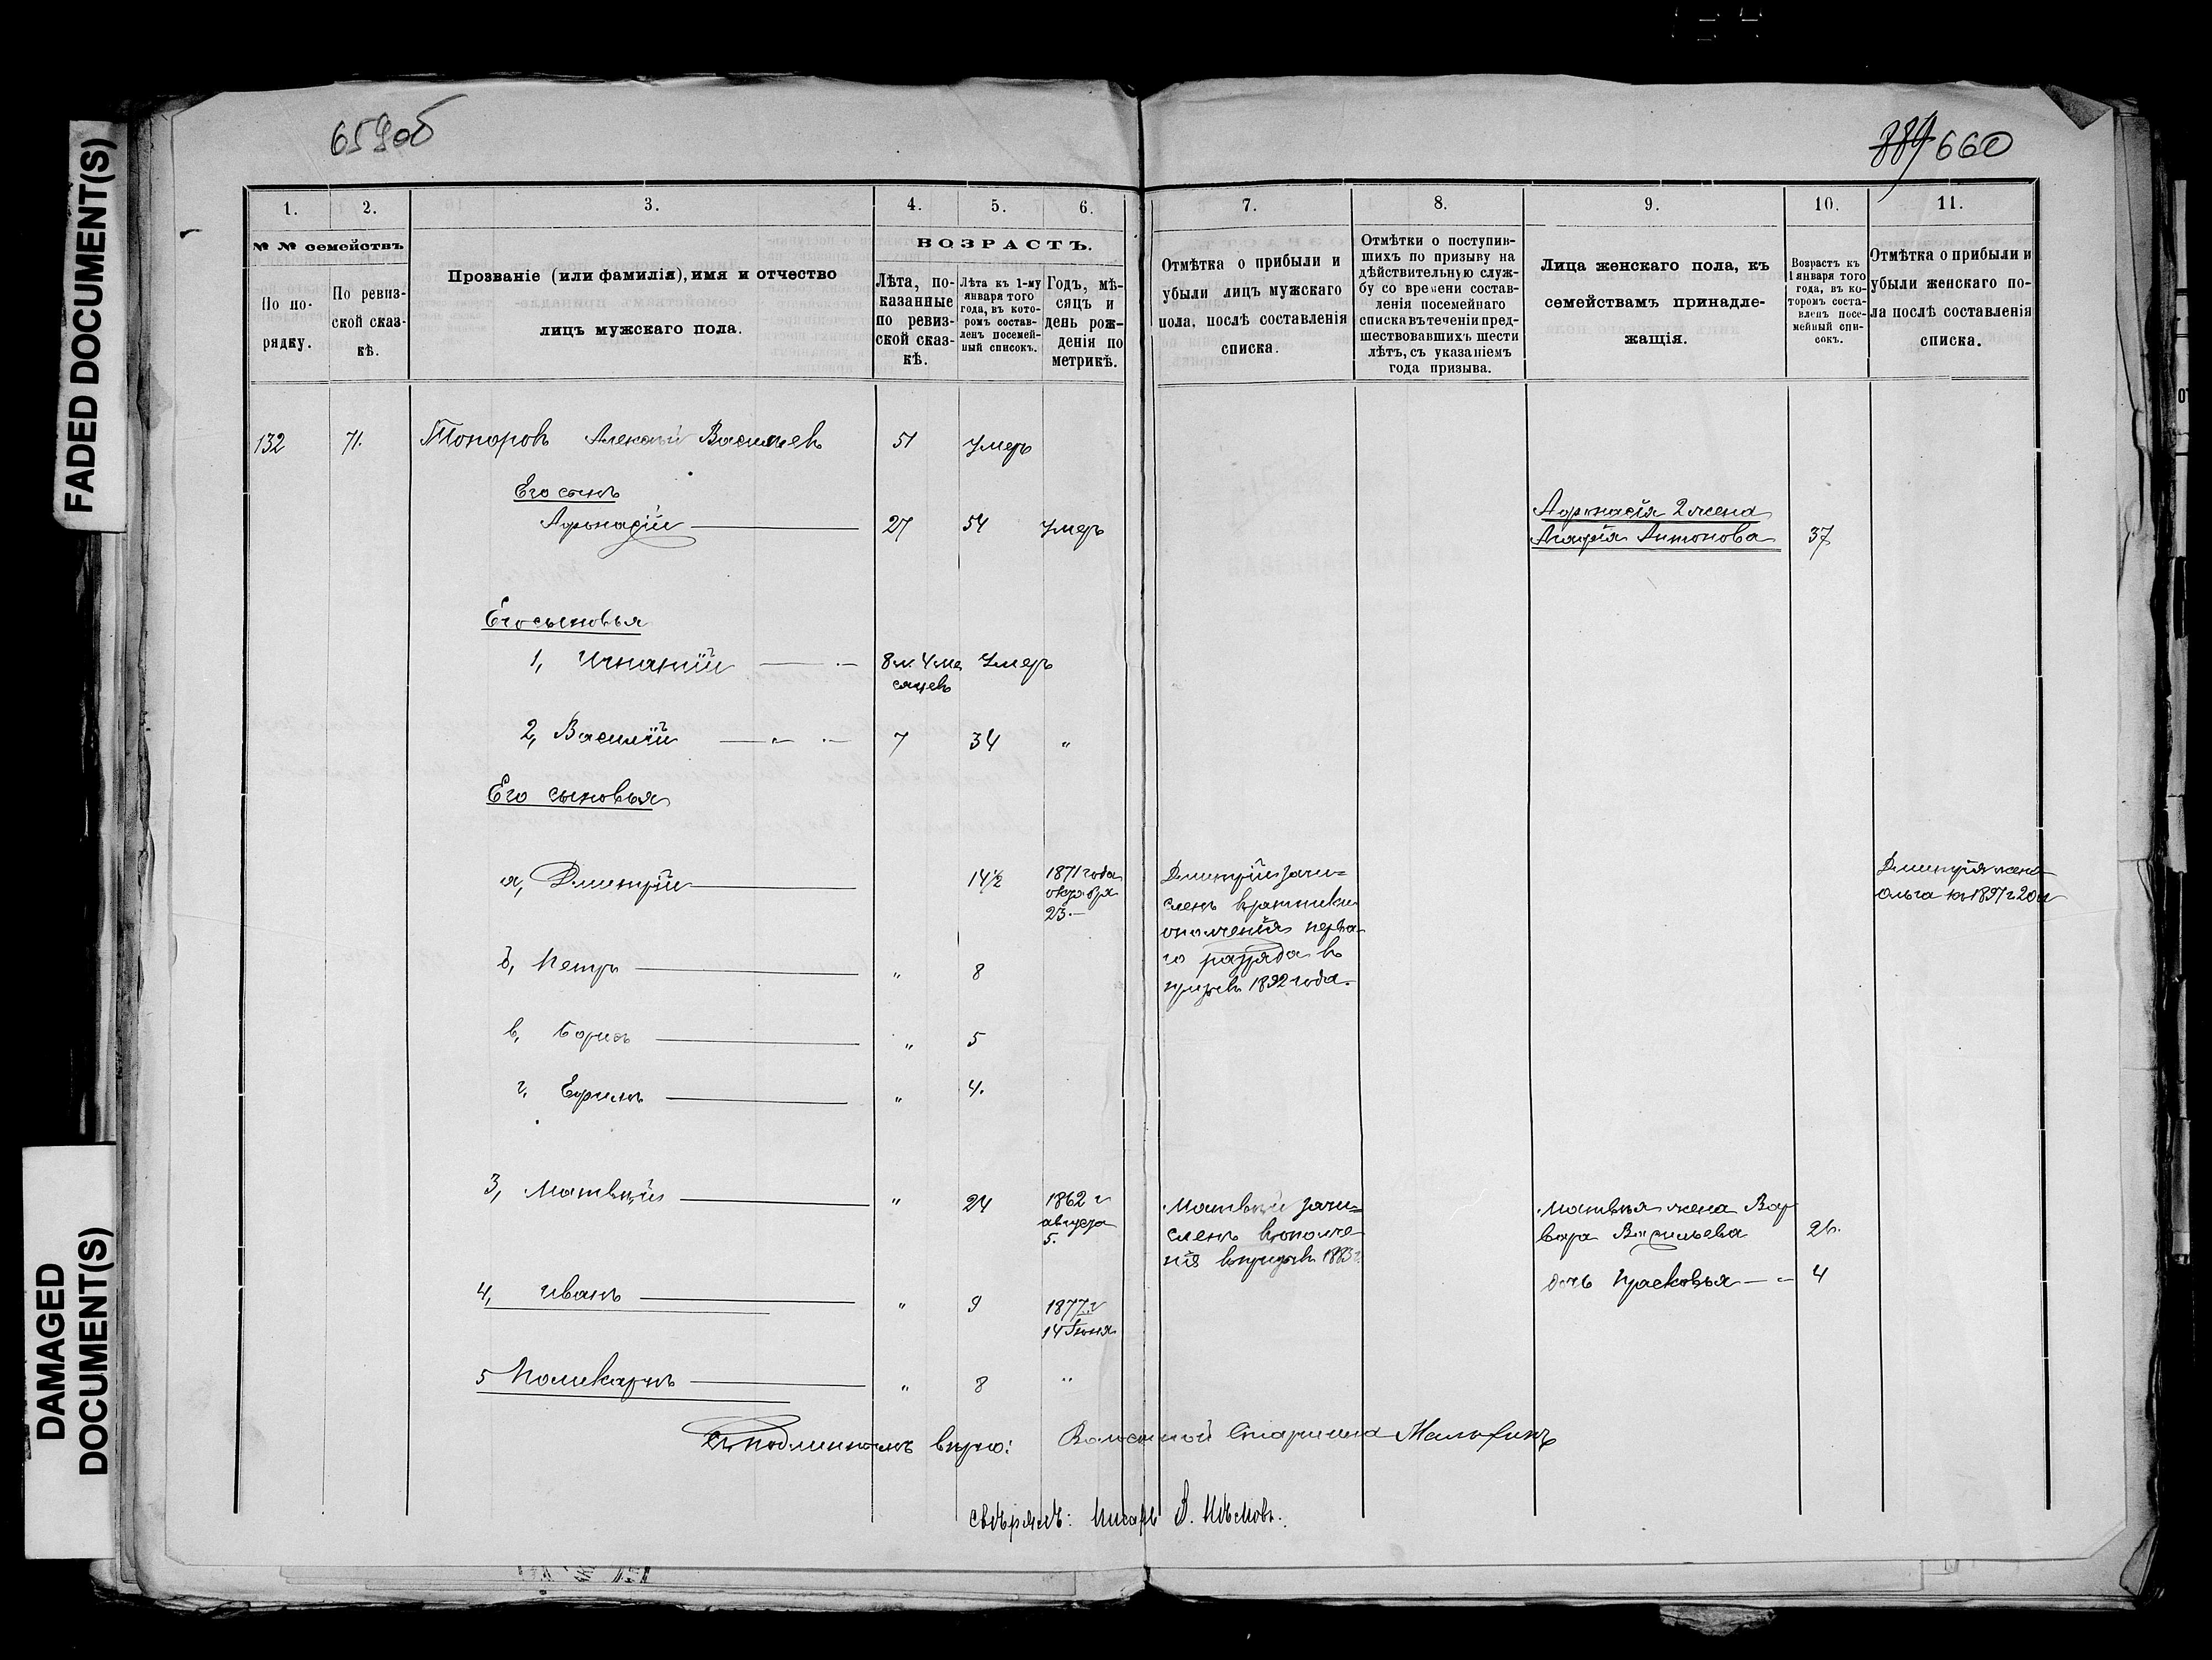 659об
889 660
FADED DOCUMENT(S)
DAMAGED DOCUMENT(S)
1. 2. 3. 4. 5. 6. 7. 8. 9. 10. 11.
№ № семействъ
По по-
рядку.
По ревиз-
ской сказ-
кѣ.
Прозваніе (или фамилія), имя и отчество
лицъ мужскаго пола.
ВОЗРАСТЪ.
Лѣта, по-
казанные
по ревиз-
ской сказ-
кѣ.
Лѣта къ 1-му
января того
года, въ кото-
ромъ состав-
ленъ посемей-
ный списокъ.
Годъ, мѣ-
сяцъ и
день рож-
денія по
метрикѣ.
Отмѣтка о прибыли и
убыли лицъ мужскаго
пола, послѣ составленія
списка.
Отмѣтки о поступив-
шихъ по призыву на
дѣйствительную служ-
бу со времени состав-
ленія посемейнаго
списка въ теченіи пред-
шествовавшихъ шести
лѣтъ, съ указаніемъ
года призыва.
Лица женскаго пола, къ
семействамъ принадле-
жащія.
Возрастъ къ
1 января того
года, въ ко-
торомъ соста-
вленъ посе-
мейный спи-
сокъ.
Отмѣтка о прибыли и
убыли женскаго по-
ла послѣ составленія
списка.
132 71. Топоровъ Алексѣй Васильевъ 51 Умеръ
Его сынъ
Афонасій 27 54 Умеръ
Афонасія 2 жена
Агафія Антонова 37
Его сыновья
1, Игнатій 8 м. 4 ме Умеръ
сяцевъ
2, Василій 7 34 "
Его сыновья
а, Дмитрій 14½ 1871 года
октября
23.
Дмитрій зачи=
сленъ в ратники
ополченія перва-
го разряда въ
призывъ 1892 года.
Дмитрія жена
Ольга къ 1897 г 20 л
б, Петръ " 8
в, Борисъ " 5
г, Ефимъ " 4.
3, Матвѣй " 24 1862 г
августа
5.
Матвѣй зачи=
сленъ в ополче
нія в призывъ 1883 г.
Матвѣя жена Вар
вара Васильева 26.
дочь Прасковья 4
4, Иванъ " 9 1877 г
14 Іюня
5 Поликарпъ " 8 "
Съ подлиннымъ вѣрно: Волостной Старшина
свѣрялъ: Писарь